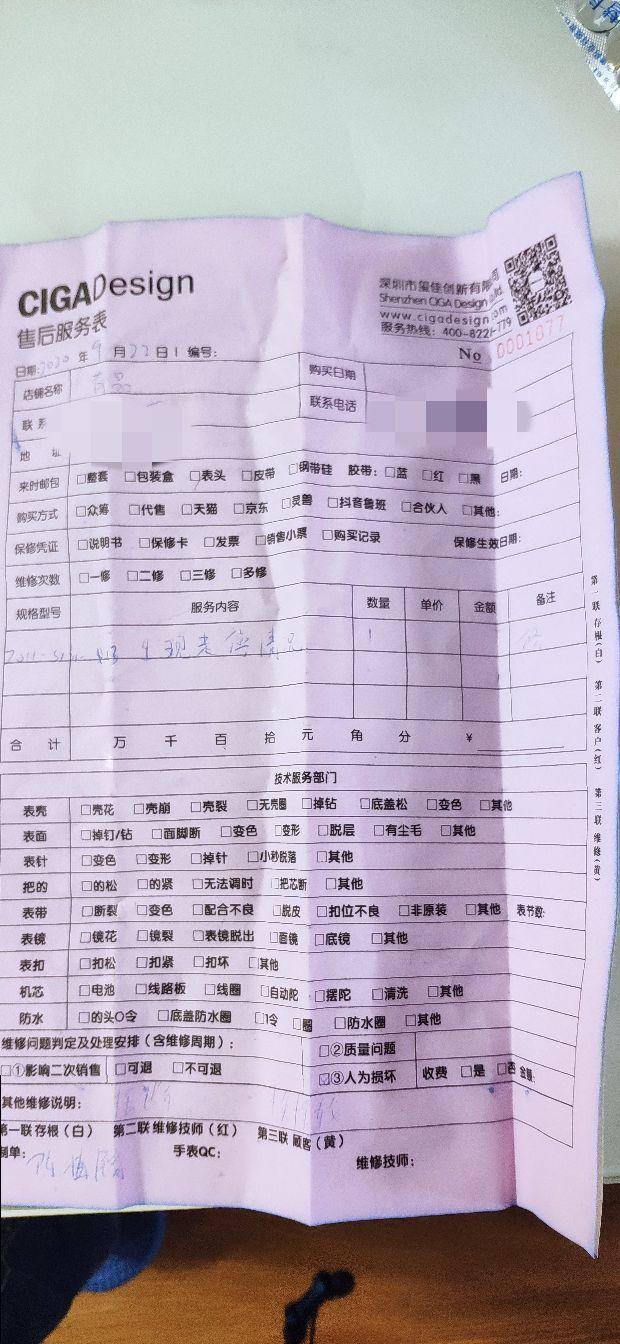 CIGA Design
深圳市玺佳创新有限
Shenzhen CIGA Design
www.cigadesign.com
售后服务表
服务热线：400-822-779
No 0001077
日期：2020 年 9 月 22 日 | 编号：
店铺名称
购买日期
联系
联系电话
地 址
来时邮包 □整套 □包装盒 □表头 □皮带 □钢带硅 胶带：□蓝 □红 □黑 日期：
购买方式 □众筹 □代售 □天猫 □京东 □灵兽 □抖音鲁班 □合伙人 □其他：
保修凭证 □说明书 □保修卡 □发票 □销售小票 □购买记录 保修生效日期：
维修次数 □一修 □二修 □三修 □多修
规格型号 服务内容 数量 单价 金额 备注
1
合 计 万 千 百 拾 元 角 分 ￥
技术服务部门
表壳 □壳花 □壳崩 □壳裂 □无壳圈 □掉钻 □底盖松 □变色 □其他
表面 □掉钉/钻 □面脚断 □变色 □变形 □脱层 □有尘毛 □其他
表针 □变色 □变形 □掉针 □小秒脱落 □其他
把的 □的松 □的紧 □无法调时 □把芯断 □其他
表带 □断裂 □变色 □配合不良 □脱皮 □扣位不良 □非原装 □其他 表节数：
表镜 □镜花 □镜裂 □表镜脱出 □面镜 □底镜 □其他
表扣 □扣松 □扣紧 □扣坏 □其他
机芯 □电池 □线路板 □线圈 □自动陀 □摆陀 □清洗 □其他
防水 □的头O令 □底盖防水圈 □令 □圈 □防水圈 □其他
维修问题判定及处理安排（含维修周期）：
□②质量问题
□①影响二次销售 □可退 □不可退
☑③人为损坏 收费 □是 □否 金额：
其他维修说明：
第一联存根（白） 第二联维修技师（红） 第三联 顾客（黄）
制单：
手表QC：
维修技师：
第一联 存根（白） 第二联 客户（红） 第三联 维修（黄）